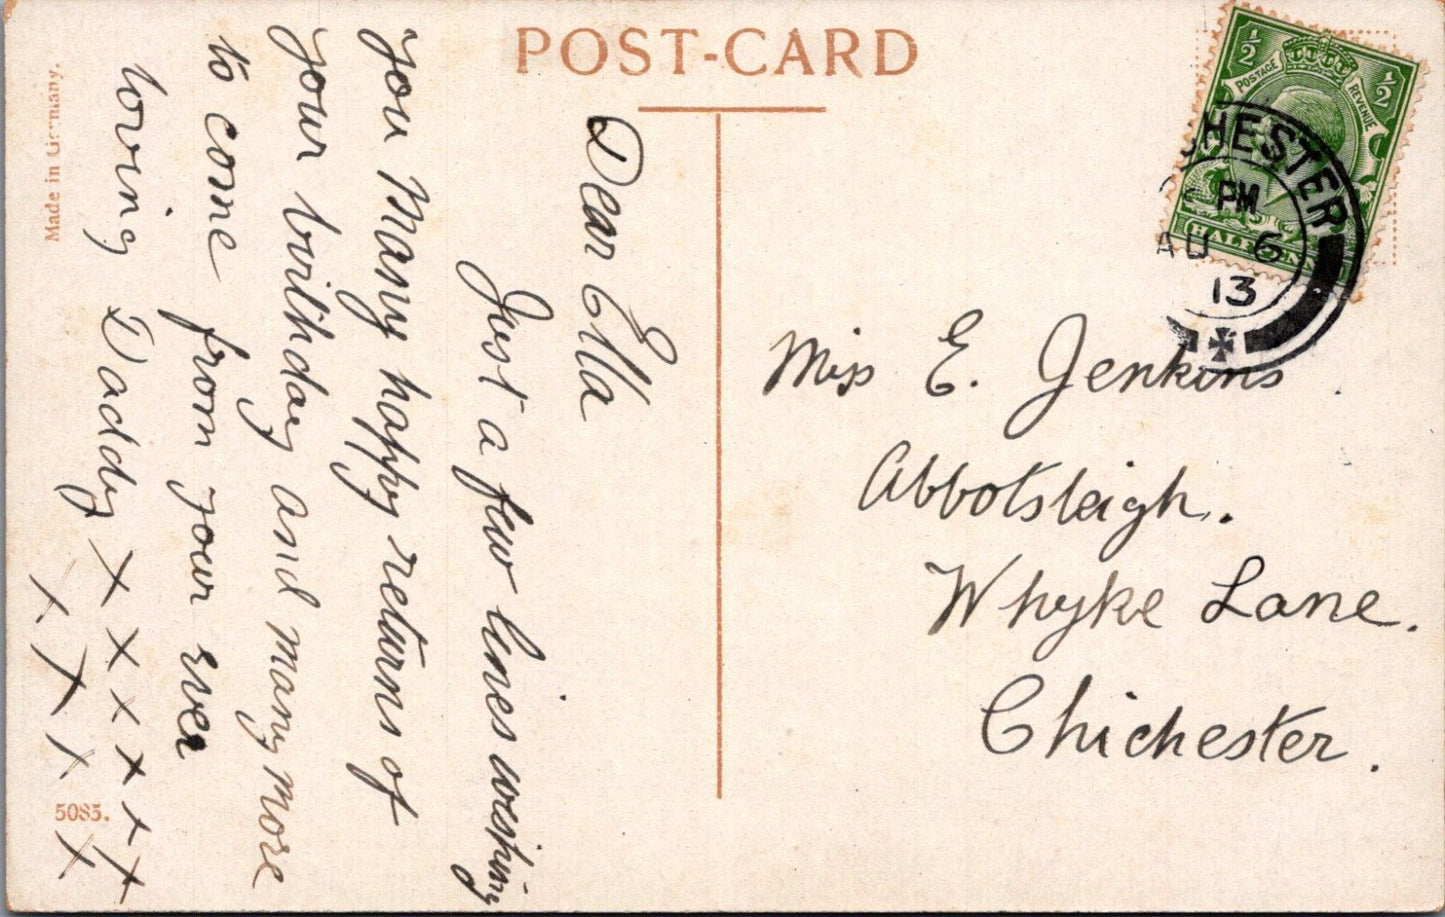 POST-CARD
Dear Ella
Just a few lines wishing
you Many happy returns of
your birthday and many more
to come from your ever
loving Daddy x x x x x x
x x x x
Miss E. Jenkins.
Abbotsleigh.
Whyke Lane.
Chichester.
½ ½
POSTAGE REVENUE
HALFPENNY
CHESTER
PM
AU 6
13
Made in Germany.
5085.